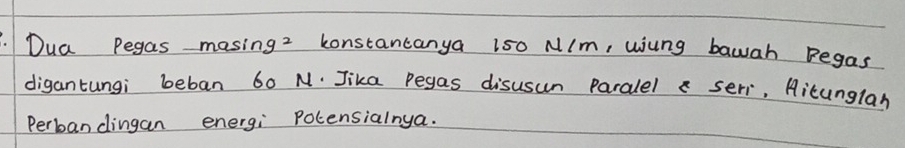 . Dua Pegas masing² konstantanya 150 N/m, ujung bawah Pegas
digantungi beban 60 N. Jika Pegas disusun Paralel & seri, Hitunglah
Perbandingan energi Potensialnya.